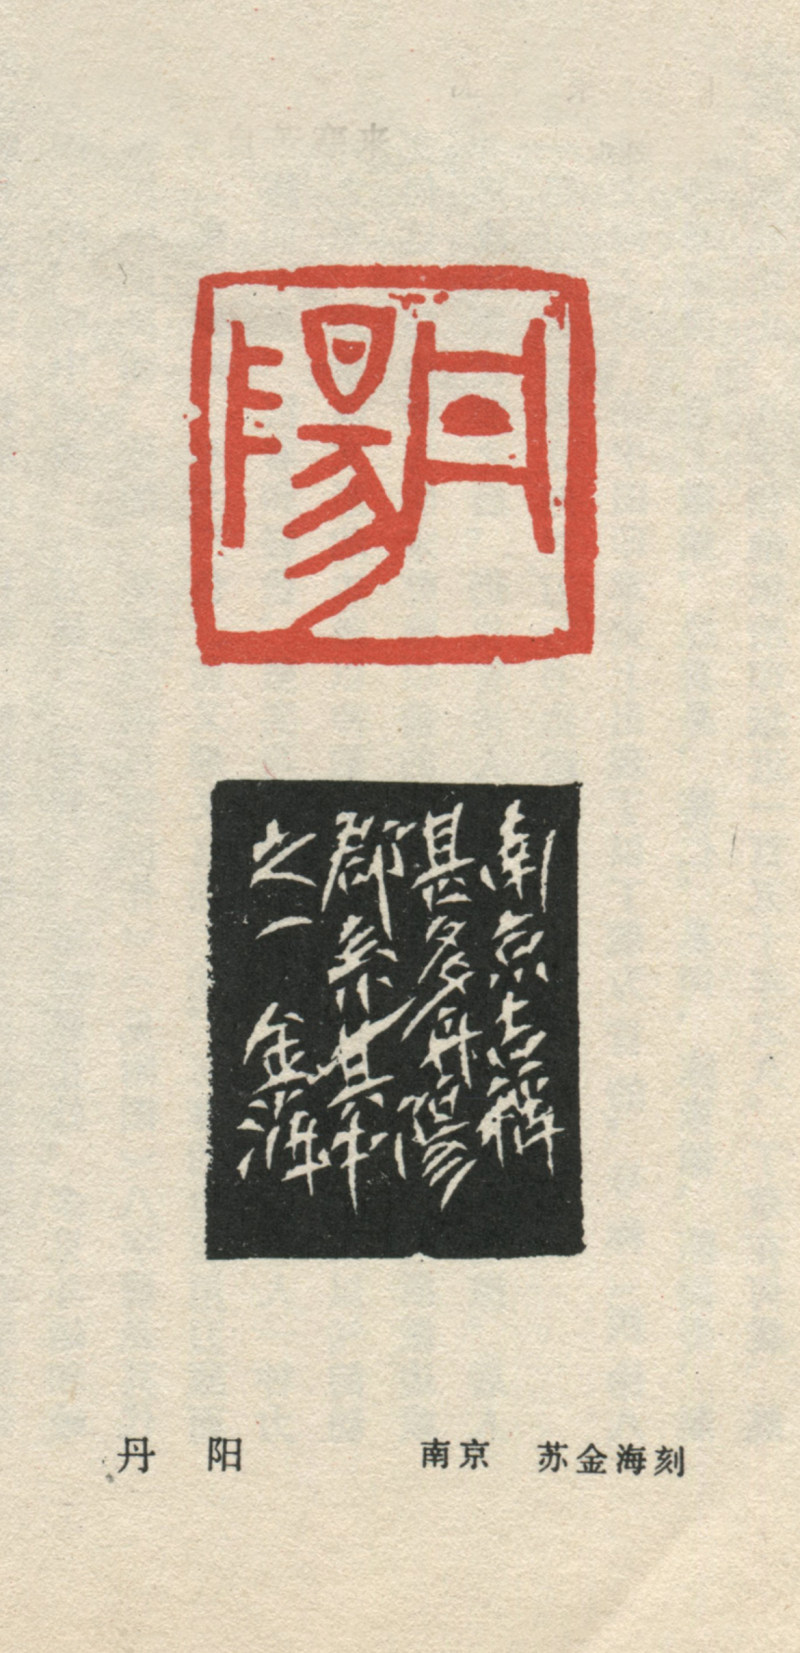 丹陽
南京古稱
甚多丹陽
郡系其中
之一 金海
丹 阳 南京 苏金海刻